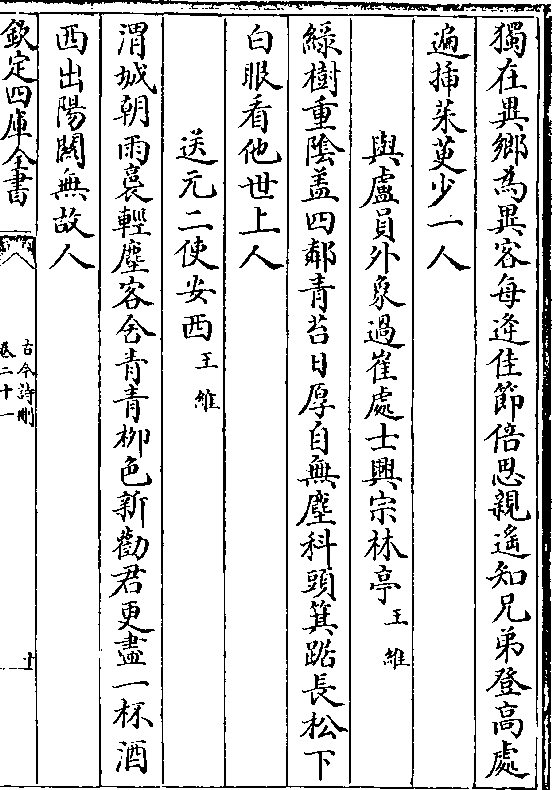 獨在異鄉為異客每逢佳節倍思親遙知兄弟登高處
遍揷茱萸少一人
與盧員外象過崔處士興宗林亭 王維
綠樹重陰盖四鄰青苔日厚自無塵科頭箕踞長松下
白眼看他世上人
送元二使安西 王維
渭城朝雨裛輕塵客舍青青栁色新勸君更盡一杯酒
西出陽關無故人
欽定四庫全書
古今詩刪
卷二十一
十